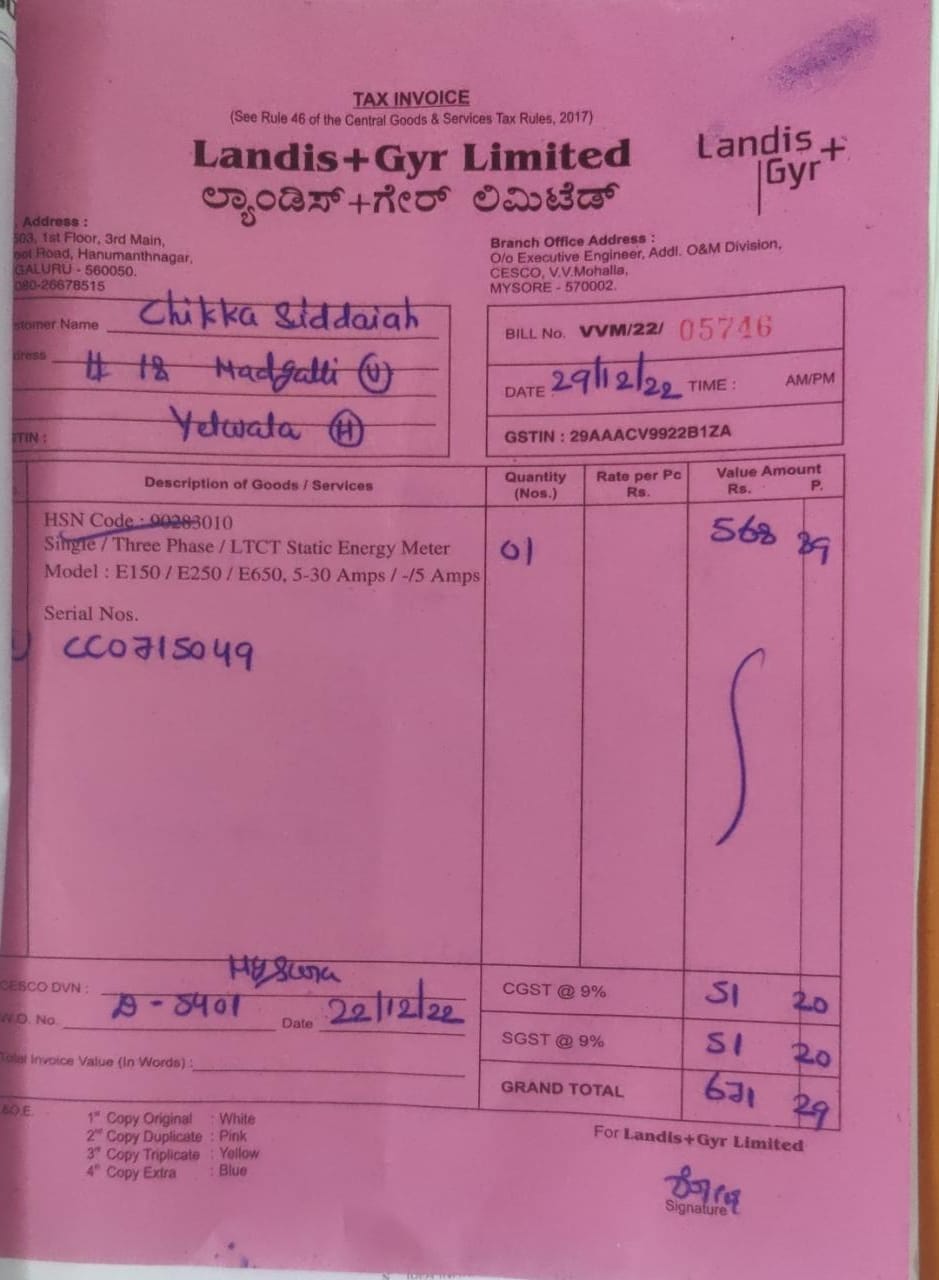 TAX INVOICE
(See Rule 46 of the Central Goods & Services Tax Rules, 2017)
Landis+Gyr Limited
ಲ್ಯಾಂಡಿಸ್+ಗೇರ್ ಲಿಮಿಟೆಡ್
Landis
Gyr+
Address :
503, 1st Floor, 3rd Main,
Road, Hanumanthnagar,
GALURU - 560050.
080-26678515
Branch Office Address :
O/o Executive Engineer, Addl. O&M Division,
CESCO, V.V.Mohalla,
MYSORE - 570002.
stomer Name Chikka Siddaiah
dress # 18 Madgalli (V)
Yelwala (H)
TIN :
BILL No. VVM/22/ 05746
DATE 29/12/22 TIME : AM/PM
GSTIN : 29AAACV9922B1ZA
Description of Goods / Services Quantity (Nos.) Rate per Pc Rs. Value Amount Rs. P.
HSN Code : 90283010
Single / Three Phase / LTCT Static Energy Meter 01 568 39
Model : E150 / E250 / E650, 5-30 Amps / -/5 Amps
Serial Nos.
CC0715049
CESCO DVN : Mysuru
W.O. No. D-5401 Date 22/12/22
Total Invoice Value (In Words) :
CGST @ 9% 51 20
SGST @ 9% 51 20
GRAND TOTAL 671 29
E.&O.E.
1st Copy Original : White
2nd Copy Duplicate : Pink
3rd Copy Triplicate : Yellow
4th Copy Extra : Blue
For Landis+Gyr Limited
Signature